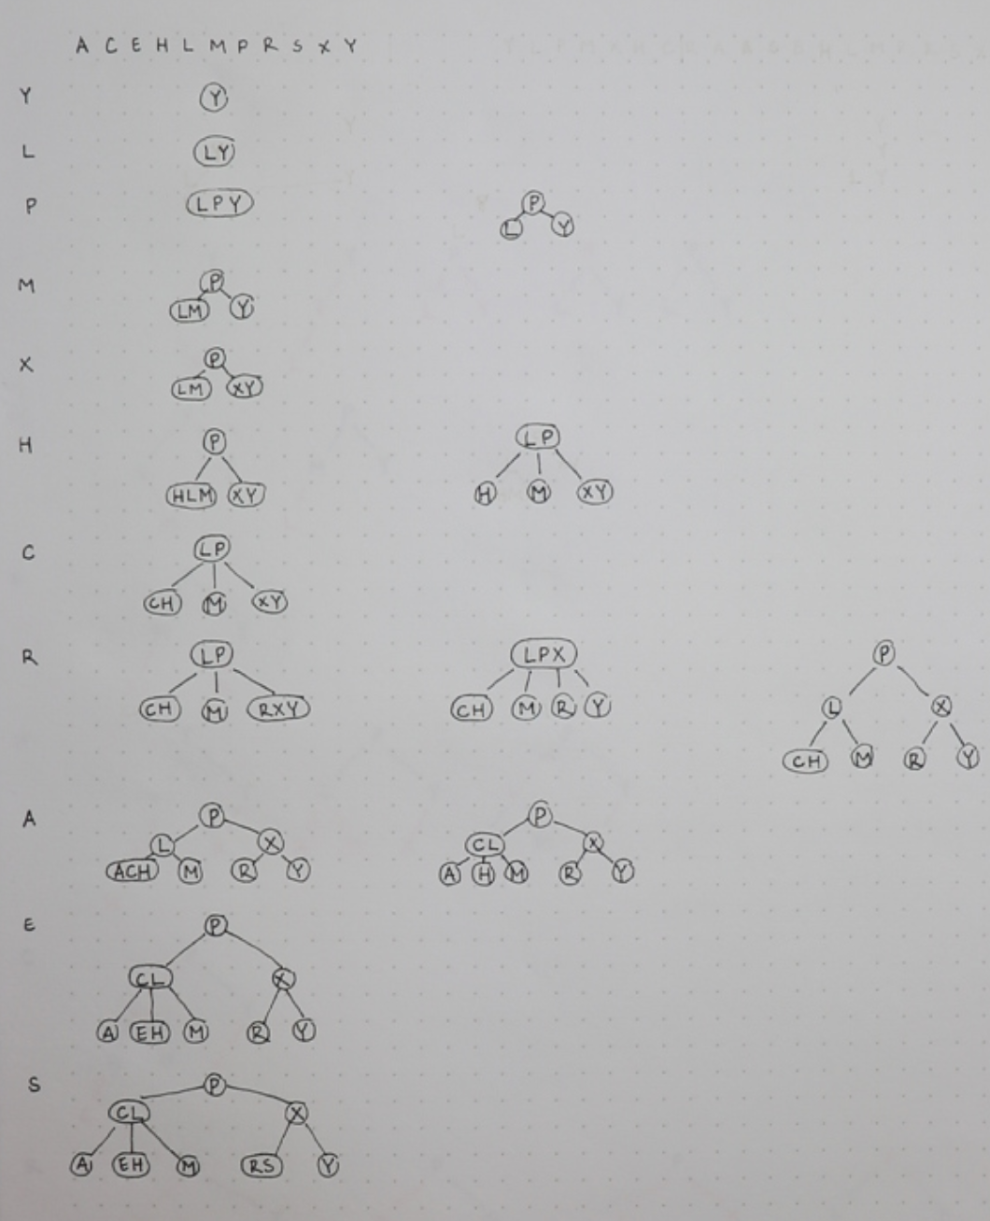 A C E H L M P R S X Y
Y Y
L LY
P LPY P
L Y
M P
LM Y
X P
LM XY
H P LP
HLM XY H M XY
C LP
CH M XY
R LP LPX P
CH M RXY CH M R Y L X
CH M R Y
A P P
L X CL X
ACH M R Y A H M R Y
E P
CL X
A EH M R Y
S P
CL X
A EH M RS Y